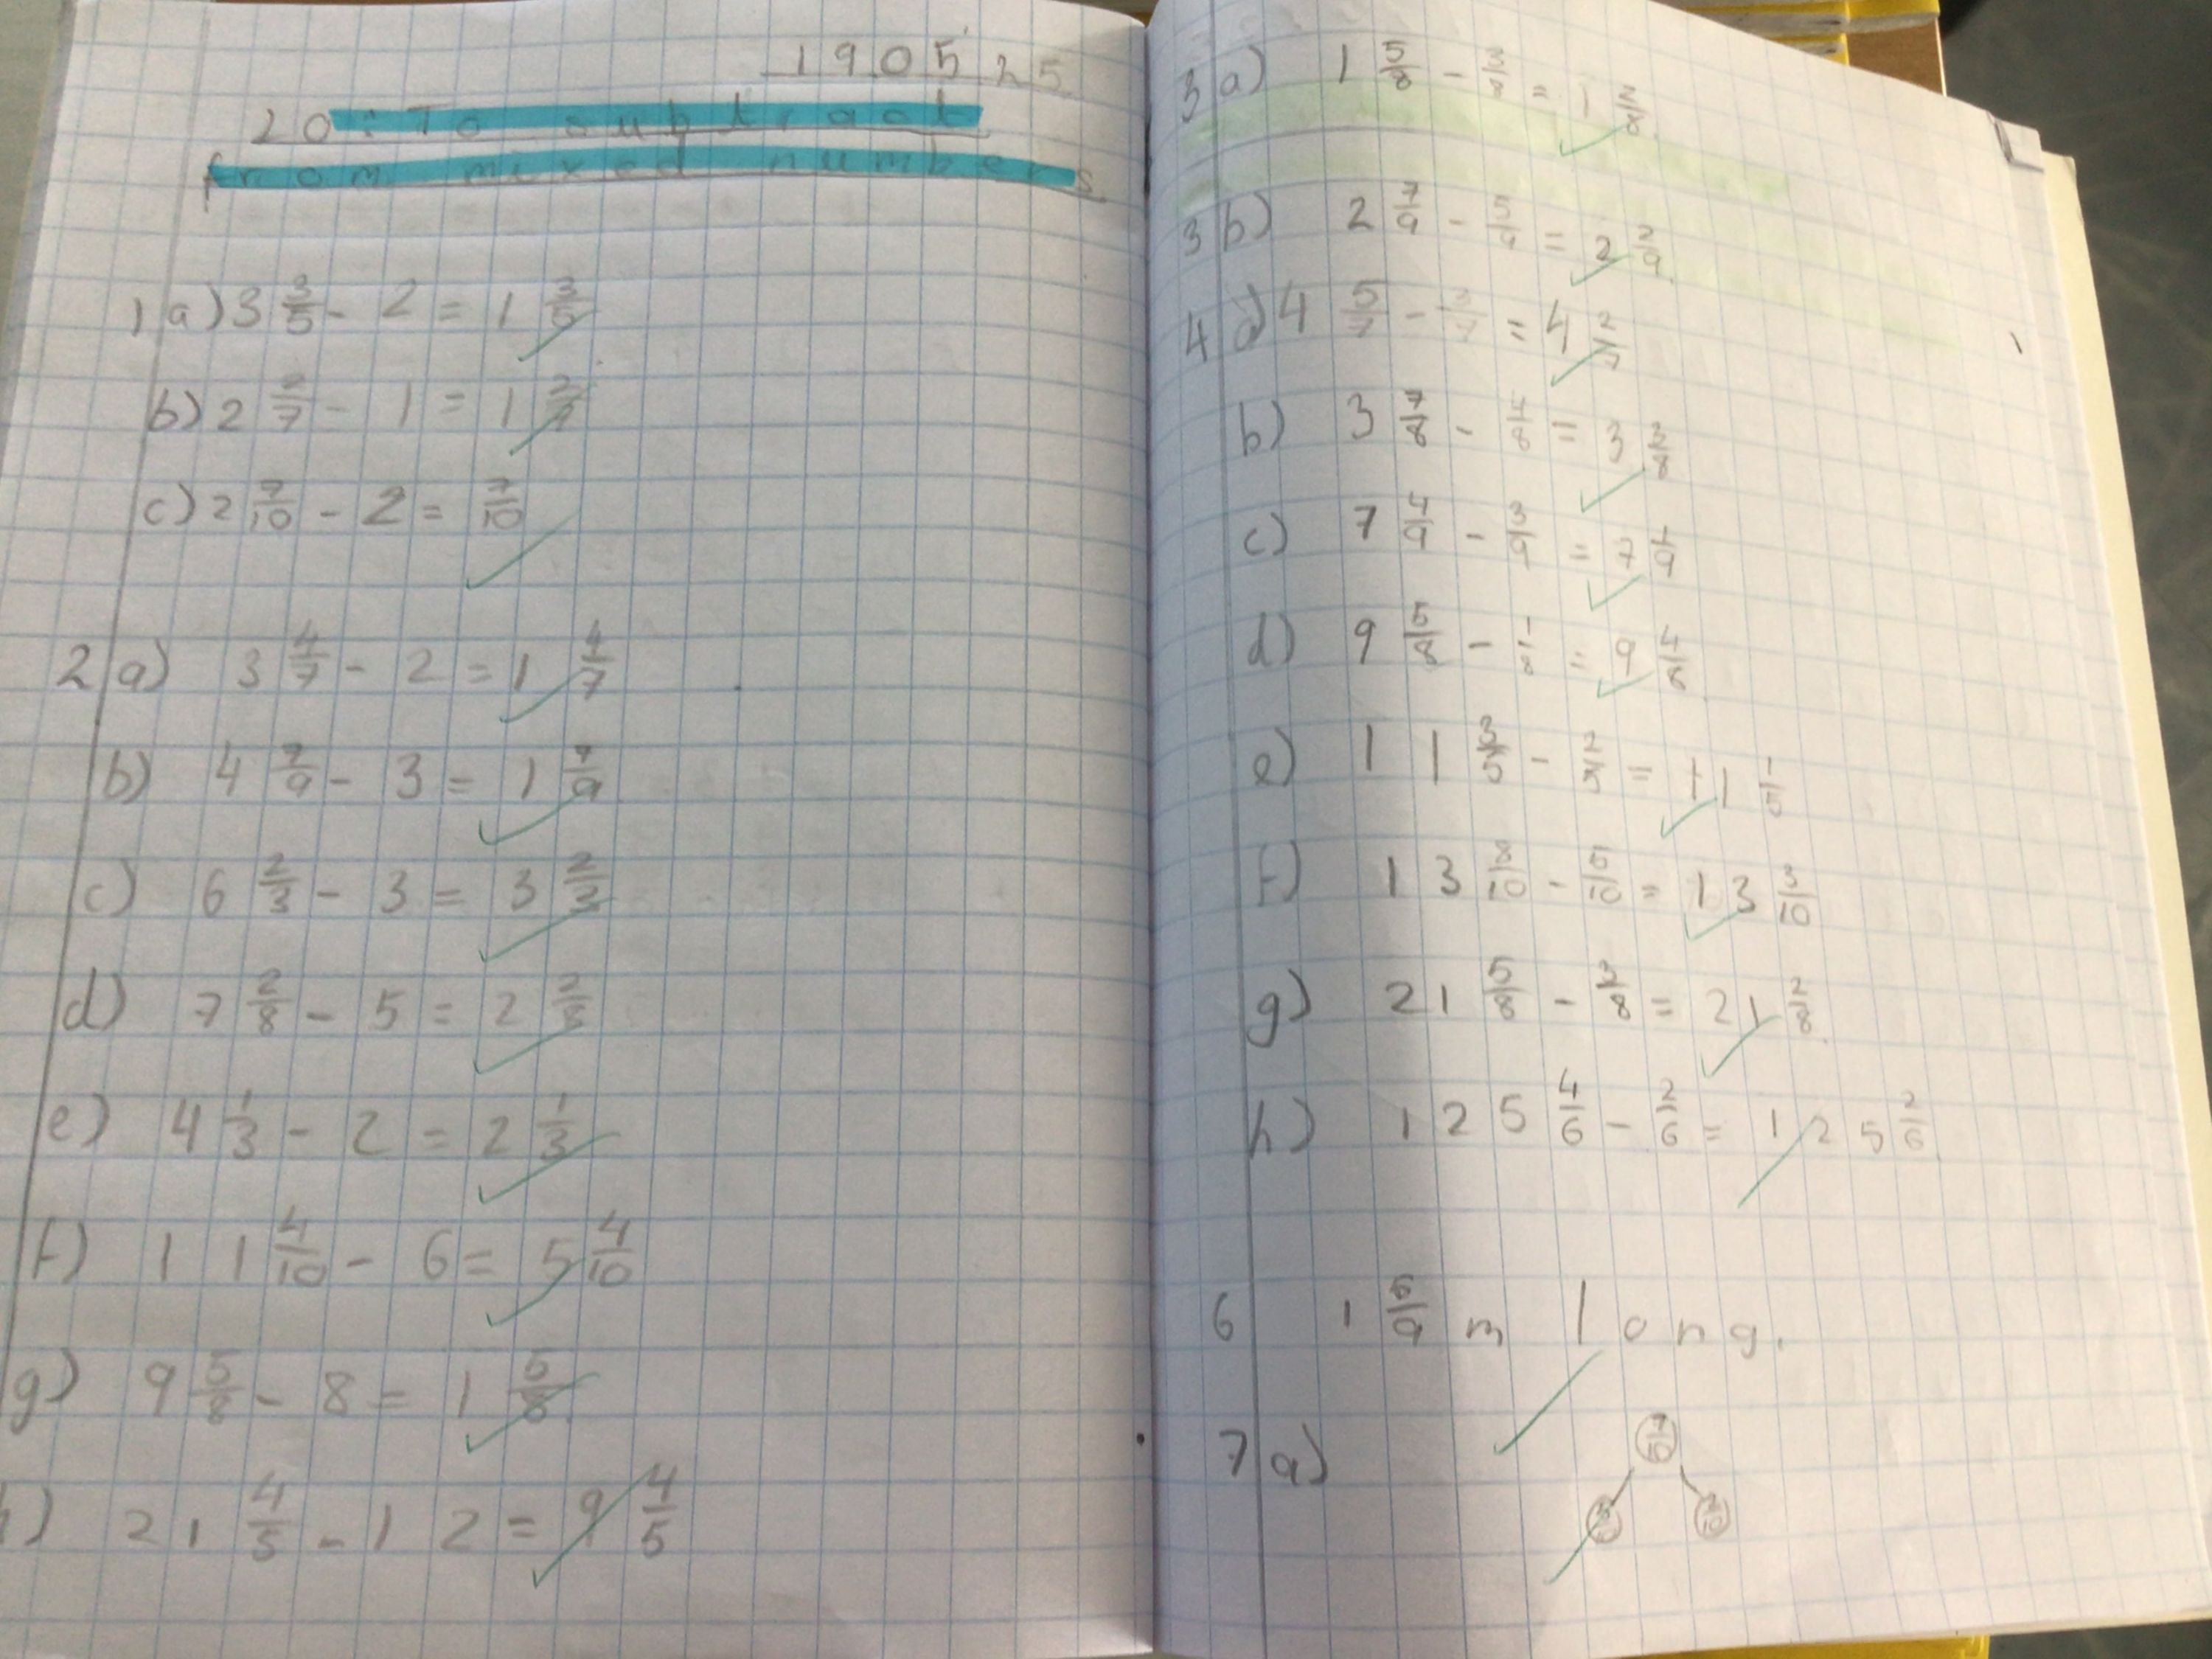 190525
20: To subtract
from mixed numbers
1 a) 3 3/5 - 2 = 1 3/5
b) 2 2/7 - 1 = 1
c) 2 7/10 - 2 = 7/10
2 a) 3 4/7 - 2 = 1 4/7
b) 4 7/9 - 3 = 1 7/9
c) 6 2/3 - 3 = 3 2/3
d) 7 2/8 - 5 = 2 2/8
e) 4 1/3 - 2 = 2 1/3
f) 11 4/10 - 6 = 5 4/10
g) 9 5/8 - 8 = 1 5/8
h) 21 4/5 - 12 = 9 4/5
3 a) 1 5/8 - 3/8 = 1 2/8
3 b) 2 7/9 - 5/9 = 2 2/9
4 a) 4 5/7 - 3/7 = 4 2/7
b) 3 7/8 - 4/8 = 3 3/8
c) 7 4/9 - 3/9 = 7 1/9
d) 9 5/8 - 1/8 = 9 4/8
e) 11 3/5 - 2/5 = 11 1/5
f) 13 8/10 - 5/10 = 13 3/10
g) 21 5/8 - 3/8 = 21 2/8
h) 125 4/6 - 2/6 = 125 2/6
6 1 5/9 m long.
7 a)